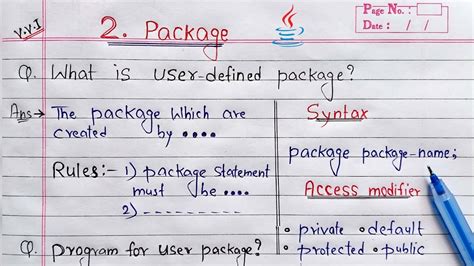 V.V.I
2. Package
Page No.:
Date: / /
Q. What is user-defined package?
Ans → The package which are
created by ....
Rules:- 1) package statement
must be ....
2) - - - - - - - -
Syntax
package package-name;
Access modifier
• private • default
• protected • public
Q. Program for user package?